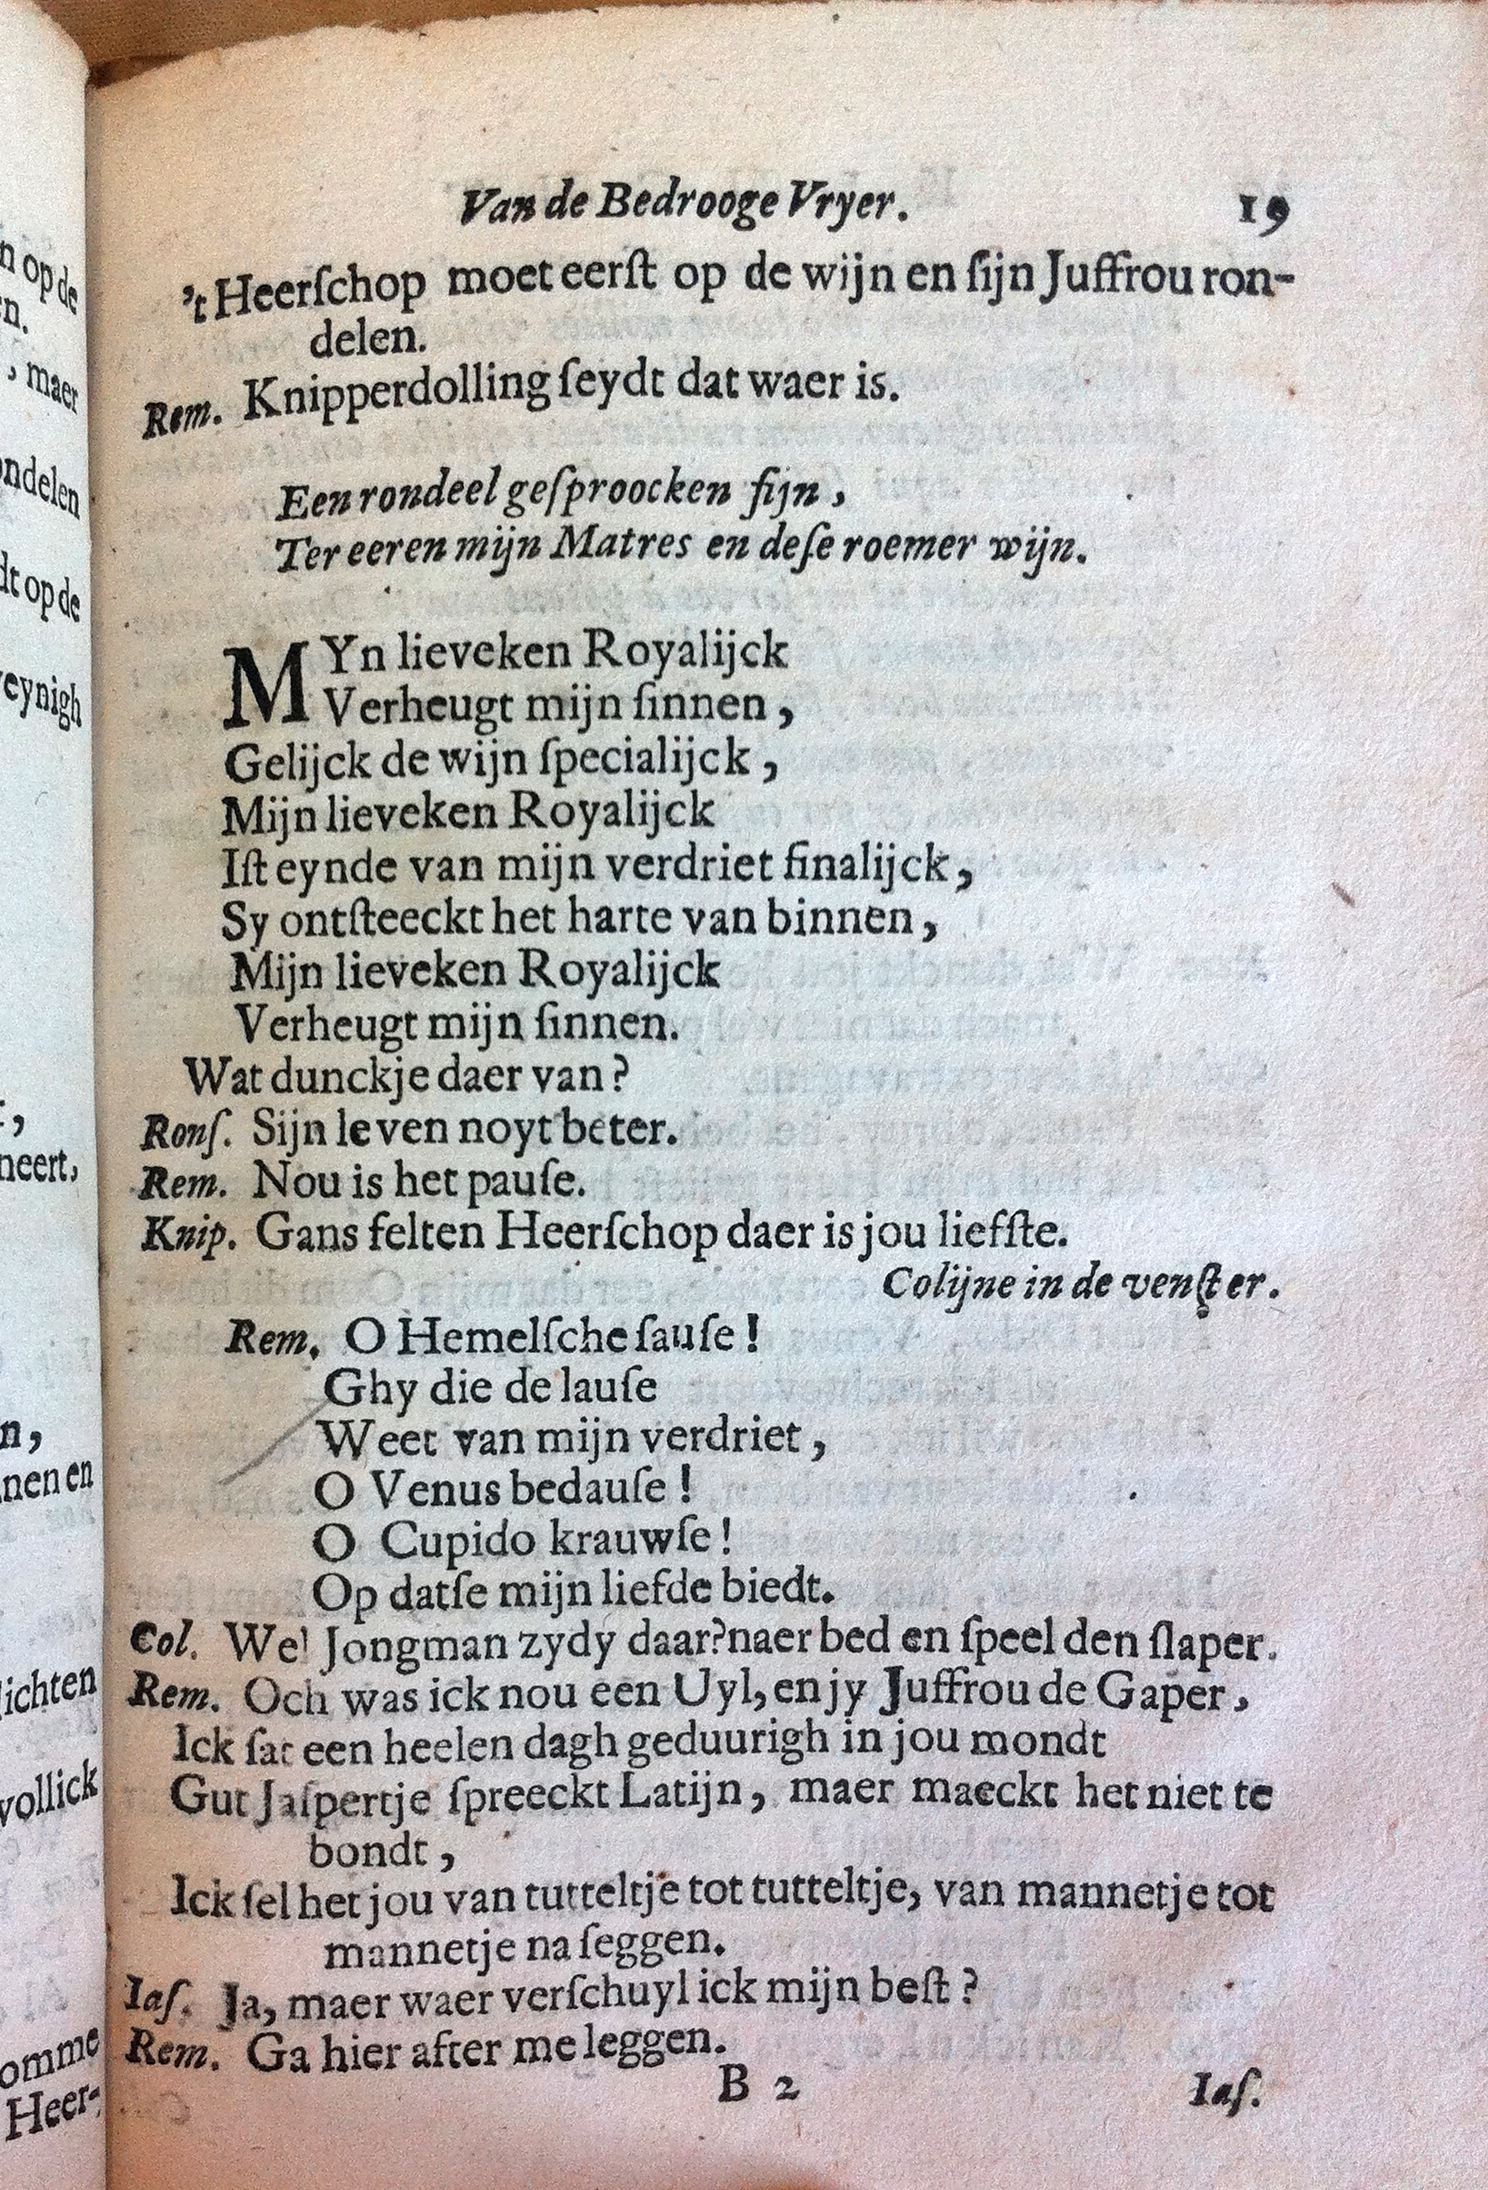 Van de Bedrooge Vryer. 19
't Heerſchop moet eerſt op de wijn en ſijn Juffrou ron-
delen.
Rem. Knipperdolling ſeydt dat waer is.
Een rondeel geſproocken ſijn,
Ter eeren mijn Matres en deſe roemer wijn.
MYn lieveken Royalijck
Verheugt mijn ſinnen,
Gelijck de wijn ſpecialijck,
Mijn lieveken Royalijck
Iſt eynde van mijn verdriet finalijck,
Sy ontſteeckt het harte van binnen,
Mijn lieveken Royalijck
Verheugt mijn ſinnen.
Wat dunckje daer van?
Ronſ. Sijn leven noyt beter.
Rem. Nou is het pauſe.
Knip. Gans felten Heerſchop daer is jou liefſte.
Colijne in de venſter.
Rem. O Hemelſche ſauſe!
Ghy die de lauſe
Weet van mijn verdriet,
O Venus bedauſe!
O Cupido krauwſe!
Op datſe mijn liefde biedt.
Col. Wel Jongman zydy daar? naer bed en ſpeel den ſlaper.
Rem. Och was ick nou een Uyl, en jy Juffrou de Gaper,
Ick ſat een heelen dagh geduurigh in jou mondt
Gut Jaſpertje ſpreeckt Latijn, maer maeckt het niet te
bondt,
Ick ſel het jou van tutteltje tot tutteltje, van mannetje tot
mannetje na ſeggen.
Iaſ. Ja, maer waer verſchuyl ick mijn beſt?
Rem. Ga hier after me leggen.
B 2 Iaſ.
n op de
n.
, maer
ondelen
dt op de
eynigh
,
neert,
n,
nen en
ichten
vollick
omme
Heer-